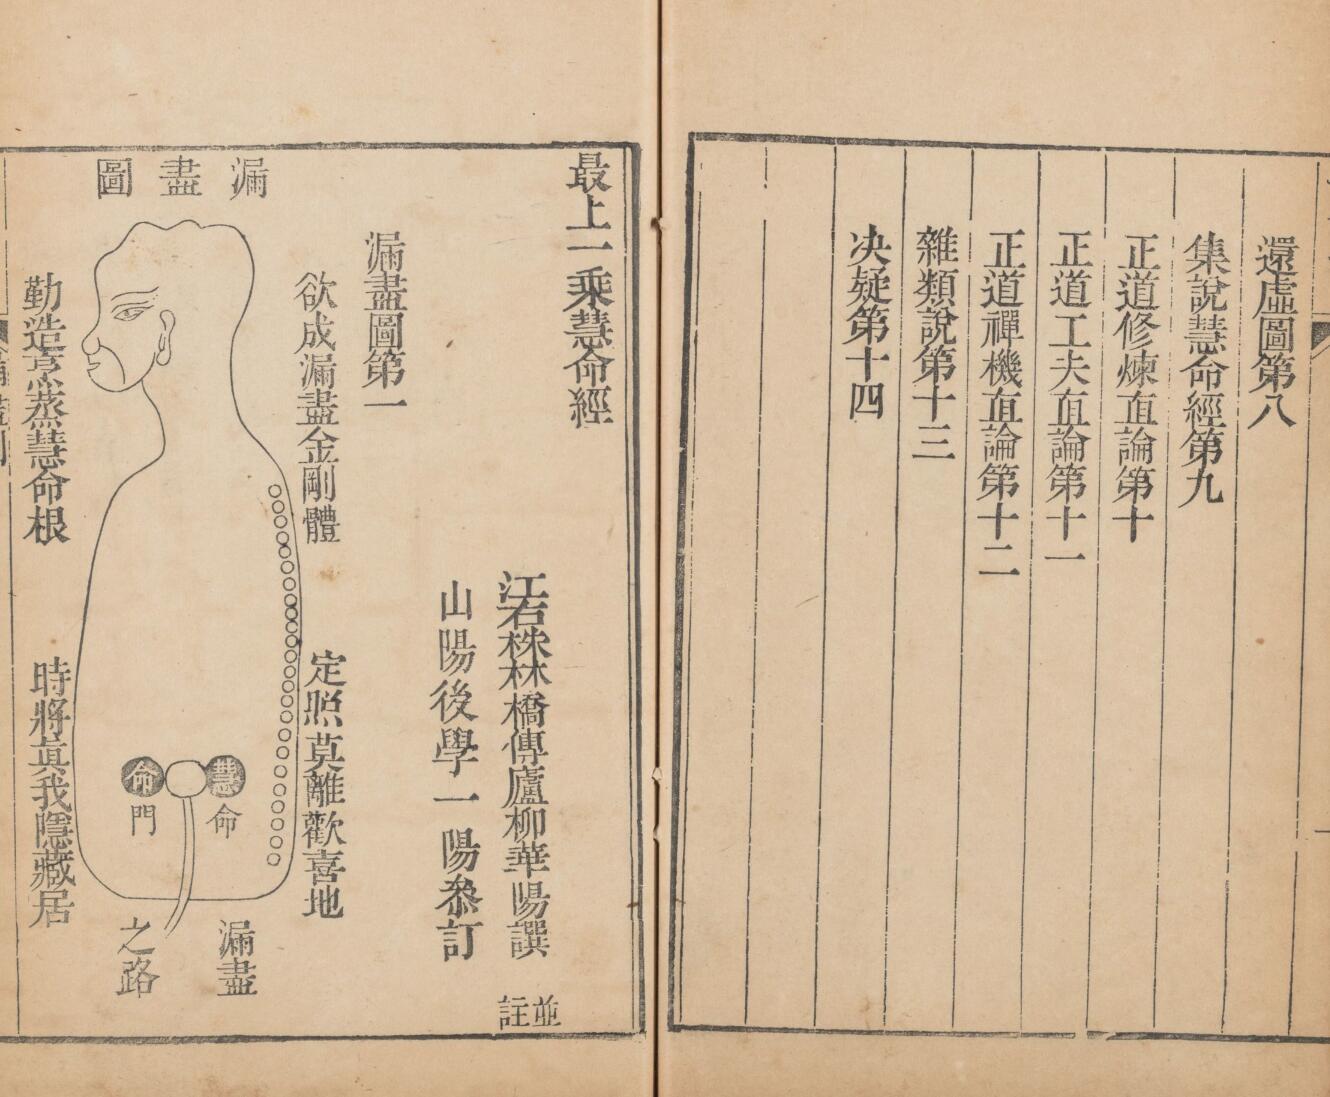 還虛圖第八
集說慧命經第九
正道修煉直論第十
正道工夫直論第十一
正道禪機直論第十二
雜類說第十三
决疑第十四
最上一乘慧命經
江右株林橋傳廬柳華陽譔
並註
山陽後學一陽叅訂
漏盡圖第一
欲成漏盡金剛體
定照莫離歡喜地
漏盡圖
慧命
命門
漏盡
之路
勤造烹蒸慧命根
時將真我隱藏居